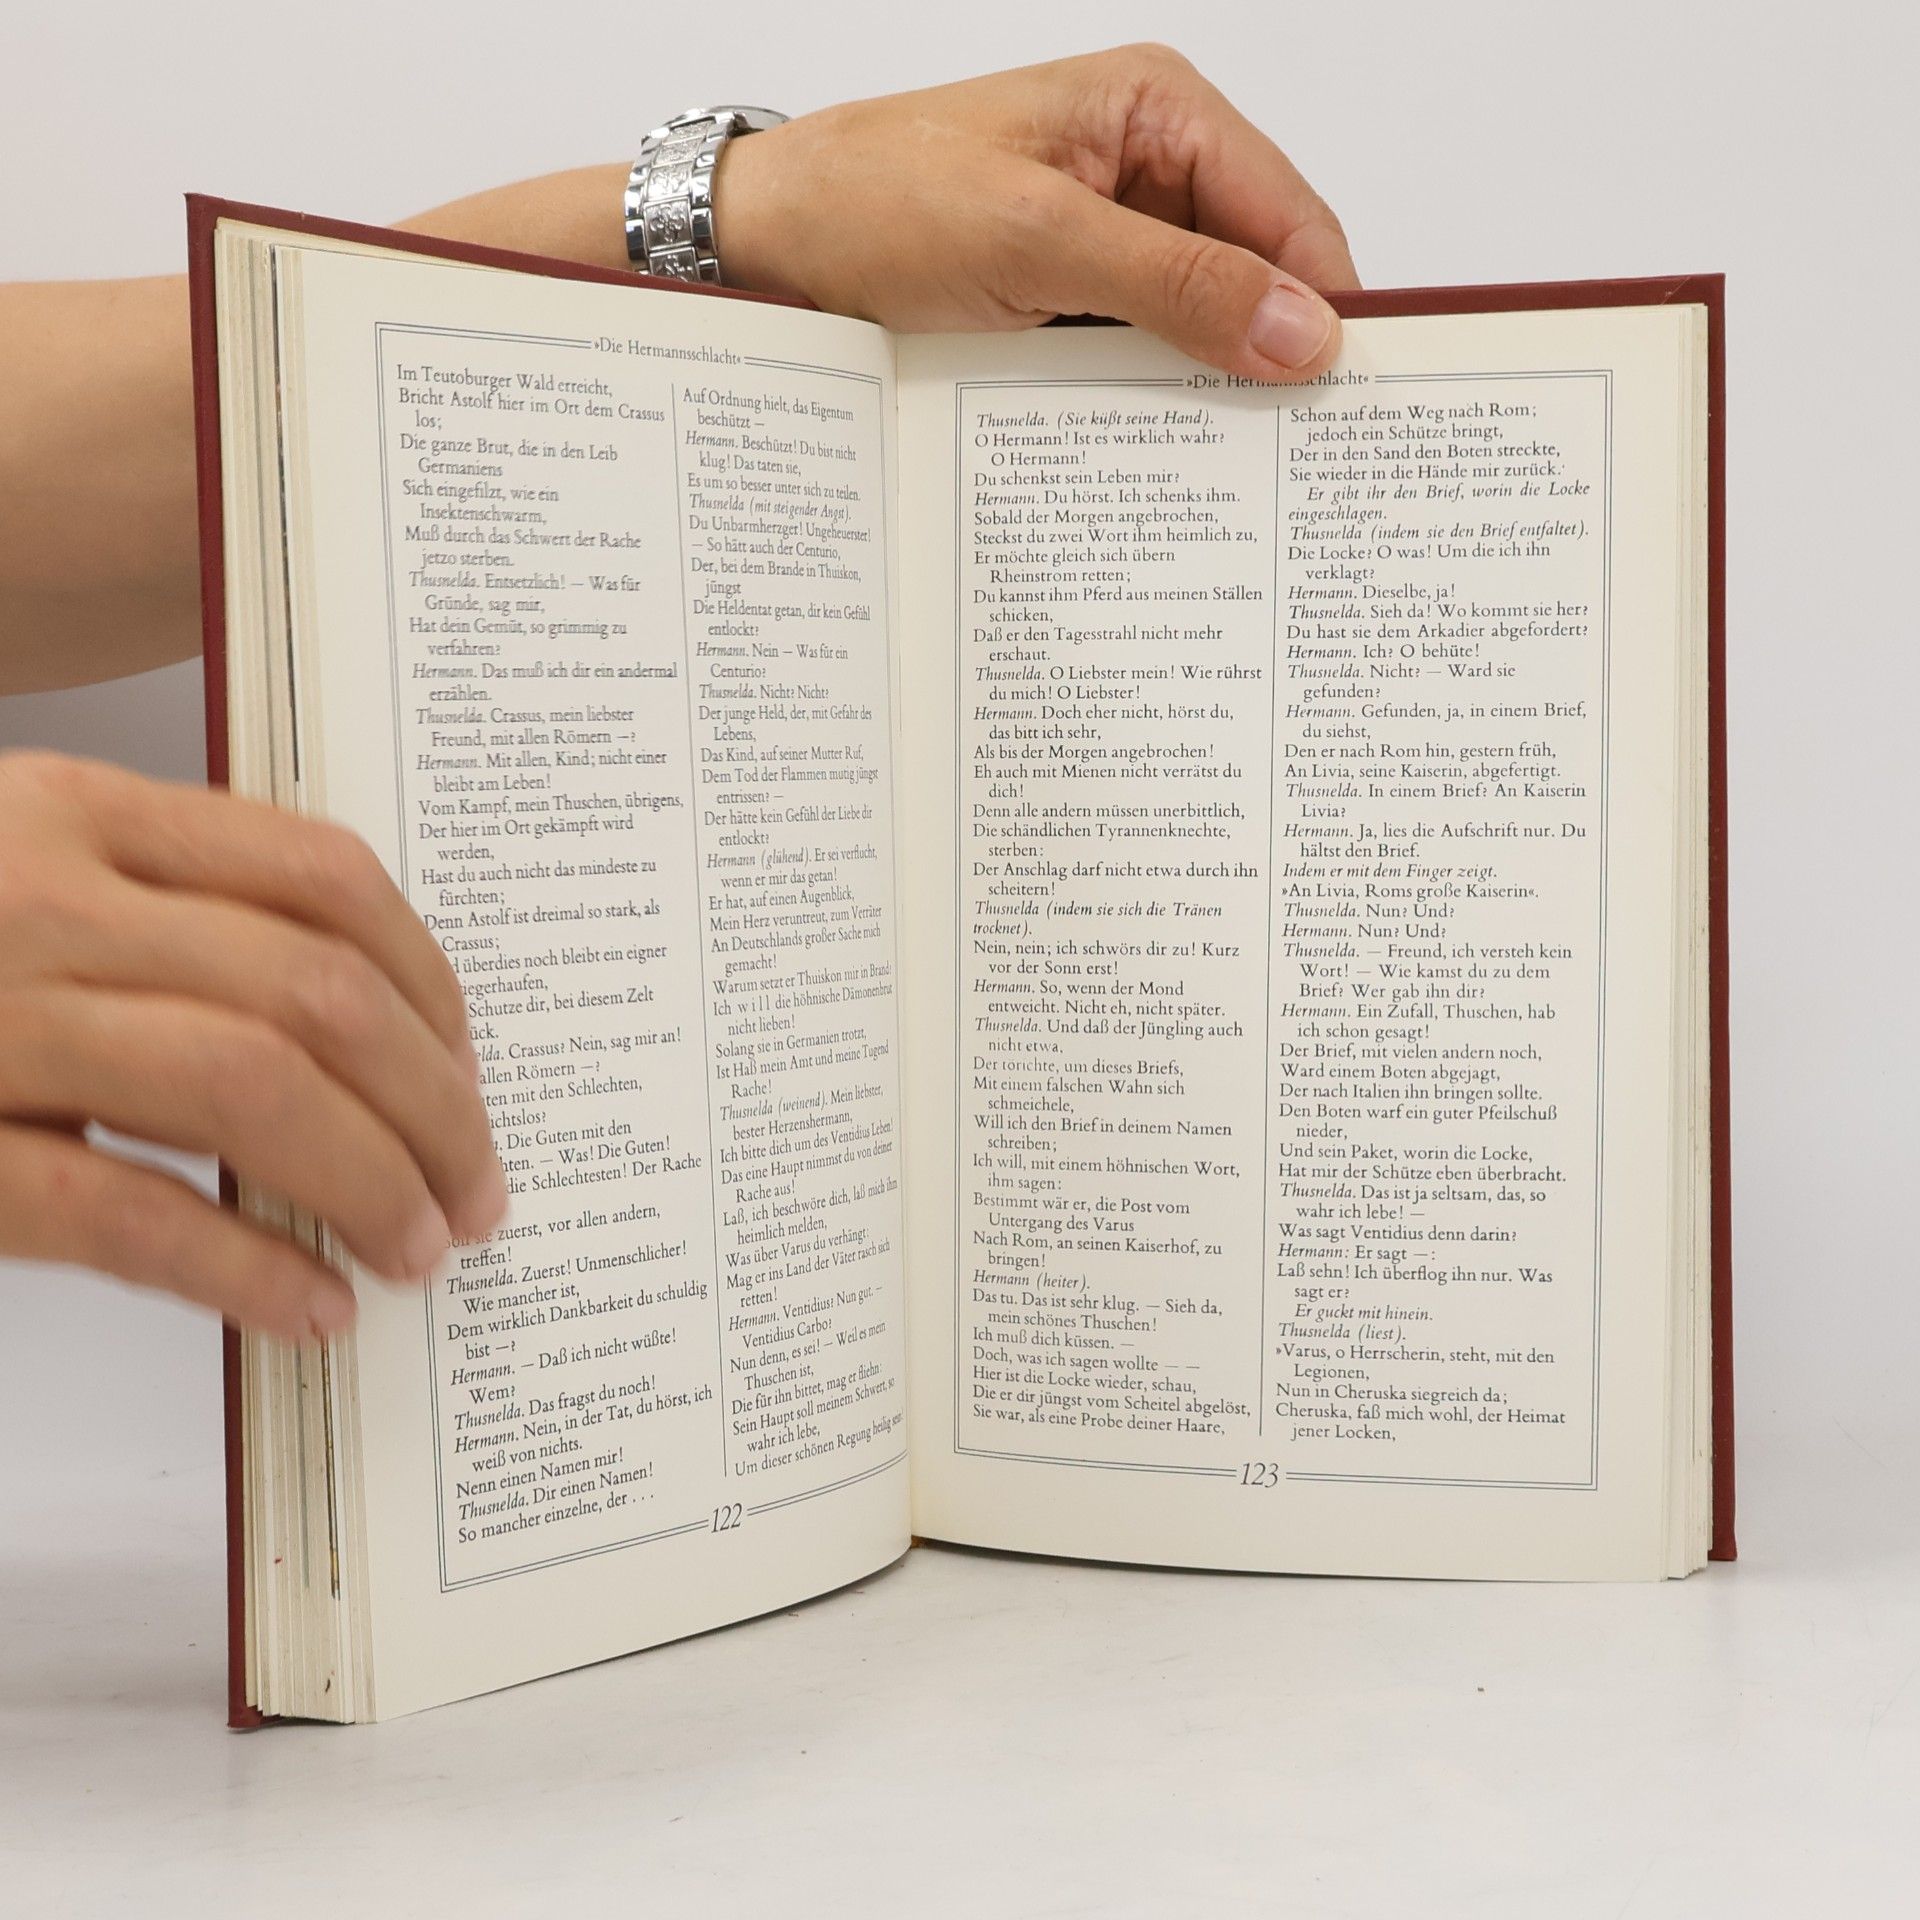 »Die Hermannsschlacht«
Im Teutoburger Wald erreicht,
Bricht Astolf hier im Ort dem Crassus
los;
Die ganze Brut, die in den Leib
Germaniens
Sich eingefilzt, wie ein
Insektenschwarm,
Muß durch das Schwert der Rache
jetzo sterben.
Thusnelda. Entsetzlich! — Was für
Gründe, sag mir,
Hat dein Gemüt, so grimmig zu
verfahren?
Hermann. Das muß ich dir ein andermal
erzählen.
Thusnelda. Crassus, mein liebster
Freund, mit allen Römern —?
Hermann. Mit allen, Kind; nicht einer
bleibt am Leben!
Vom Kampf, mein Thuschen, übrigens,
Der hier im Ort gekämpft wird
werden,
Hast du auch nicht das mindeste zu
fürchten;
Denn Astolf ist dreimal so stark, als
Crassus;
überdies noch bleibt ein eigner
iegerhaufen,
Schutze dir, bei diesem Zelt
ück.
elda. Crassus? Nein, sag mir an!
allen Römern —?
ten mit den Schlechten,
ichtslos?
Die Guten mit den
hten. — Was! Die Guten!
die Schlechtesten! Der Rache
sie zuerst, vor allen andern,
treffen!
Thusnelda. Zuerst! Unmenschlicher!
Wie mancher ist,
Dem wirklich Dankbarkeit du schuldig
bist —?
Hermann. — Daß ich nicht wüßte!
Wem?
Thusnelda. Das fragst du noch!
Hermann. Nein, in der Tat, du hörst, ich
weiß von nichts.
Nenn einen Namen mir!
Thusnelda. Dir einen Namen!
So mancher einzelne, der . . .
Auf Ordnung hielt, das Eigentum
beschützt —
Hermann. Beschützt! Du bist nicht
klug! Das taten sie,
Es um so besser unter sich zu teilen.
Thusnelda (mit steigender Angst).
Du Unbarmherzger! Ungeheuerster!
— So hätt auch der Centurio,
Der, bei dem Brande in Thuiskon,
jüngst
Die Heldentat getan, dir kein Gefühl
entlockt?
Hermann. Nein — Was für ein
Centurio?
Thusnelda. Nicht? Nicht?
Der junge Held, der, mit Gefahr des
Lebens,
Das Kind, auf seiner Mutter Ruf,
Dem Tod der Flammen mutig jüngst
entrissen? —
Der hätte kein Gefühl der Liebe dir
entlockt?
Hermann (glühend). Er sei verflucht,
wenn er mir das getan!
Er hat, auf einen Augenblick,
Mein Herz veruntreut, zum Verräter
An Deutschlands großer Sache mich
gemacht!
Warum setzt er Thuiskon mir in Brand?
Ich will die höhnische Dämonenbrut
nicht lieben!
Solang sie in Germanien trotzt,
Ist Haß mein Amt und meine Tugend
Rache!
Thusnelda (weinend). Mein liebster,
bester Herzenshermann,
Ich bitte dich um des Ventidius Leben!
Das eine Haupt nimmst du von deiner
Rache aus!
Laß, ich beschwöre dich, laß mich ihm
heimlich melden,
Was über Varus du verhängt:
Mag er ins Land der Väter rasch sich
retten!
Hermann. Ventidius? Nun gut. —
Ventidius Carbo?
Nun denn, es sei! — Weil es mein
Thuschen ist,
Die für ihn bittet, mag er fliehn:
Sein Haupt soll meinem Schwert, so
wahr ich lebe,
Um dieser schönen Regung heilig sein!
122
»Die Hermannsschlacht«
Thusnelda. (Sie küßt seine Hand).
O Hermann! Ist es wirklich wahr?
O Hermann!
Du schenkst sein Leben mir?
Hermann. Du hörst. Ich schenks ihm.
Sobald der Morgen angebrochen,
Steckst du zwei Wort ihm heimlich zu,
Er möchte gleich sich übern
Rheinstrom retten;
Du kannst ihm Pferd aus meinen Ställen
schicken,
Daß er den Tagesstrahl nicht mehr
erschaut.
Thusnelda. O Liebster mein! Wie rührst
du mich! O Liebster!
Hermann. Doch eher nicht, hörst du,
das bitt ich sehr,
Als bis der Morgen angebrochen!
Eh auch mit Mienen nicht verrätst du
dich!
Denn alle andern müssen unerbittlich,
Die schändlichen Tyrannenknechte,
sterben:
Der Anschlag darf nicht etwa durch ihn
scheitern!
Thusnelda (indem sie sich die Tränen
trocknet).
Nein, nein; ich schwörs dir zu! Kurz
vor der Sonn erst!
Hermann. So, wenn der Mond
entweicht. Nicht eh, nicht später.
Thusnelda. Und daß der Jüngling auch
nicht etwa,
Der törichte, um dieses Briefs,
Mit einem falschen Wahn sich
schmeichele,
Will ich den Brief in deinem Namen
schreiben;
Ich will, mit einem höhnischen Wort,
ihm sagen:
Bestimmt wär er, die Post vom
Untergang des Varus
Nach Rom, an seinen Kaiserhof, zu
bringen!
Hermann (heiter).
Das tu. Das ist sehr klug. — Sieh da,
mein schönes Thuschen!
Ich muß dich küssen. —
Doch, was ich sagen wollte — —
Hier ist die Locke wieder, schau,
Die er dir jüngst vom Scheitel abgelöst,
Sie war, als eine Probe deiner Haare,
Schon auf dem Weg nach Rom;
jedoch ein Schütze bringt,
Der in den Sand den Boten streckte,
Sie wieder in die Hände mir zurück.
Er gibt ihr den Brief, worin die Locke
eingeschlagen.
Thusnelda (indem sie den Brief entfaltet).
Die Locke? O was! Um die ich ihn
verklagt?
Hermann. Dieselbe, ja!
Thusnelda. Sieh da! Wo kommt sie her?
Du hast sie dem Arkadier abgefordert?
Hermann. Ich? O behüte!
Thusnelda. Nicht? — Ward sie
gefunden?
Hermann. Gefunden, ja, in einem Brief,
du siehst,
Den er nach Rom hin, gestern früh,
An Livia, seine Kaiserin, abgefertigt.
Thusnelda. In einem Brief? An Kaiserin
Livia?
Hermann. Ja, lies die Aufschrift nur. Du
hältst den Brief.
Indem er mit dem Finger zeigt.
»An Livia, Roms große Kaiserin«.
Thusnelda. Nun? Und?
Hermann. Nun? Und?
Thusnelda. — Freund, ich versteh kein
Wort! — Wie kamst du zu dem
Brief? Wer gab ihn dir?
Hermann. Ein Zufall, Thuschen, hab
ich schon gesagt!
Der Brief, mit vielen andern noch,
Ward einem Boten abgejagt,
Der nach Italien ihn bringen sollte.
Den Boten warf ein guter Pfeilschuß
nieder,
Und sein Paket, worin die Locke,
Hat mir der Schütze eben überbracht.
Thusnelda. Das ist ja seltsam, das, so
wahr ich lebe! —
Was sagt Ventidius denn darin?
Hermann: Er sagt —:
Laß sehn! Ich überflog ihn nur. Was
sagt er?
Er guckt mit hinein.
Thusnelda (liest).
»Varus, o Herrscherin, steht, mit den
Legionen,
Nun in Cheruska siegreich da;
Cheruska, faß mich wohl, der Heimat
jener Locken,
123